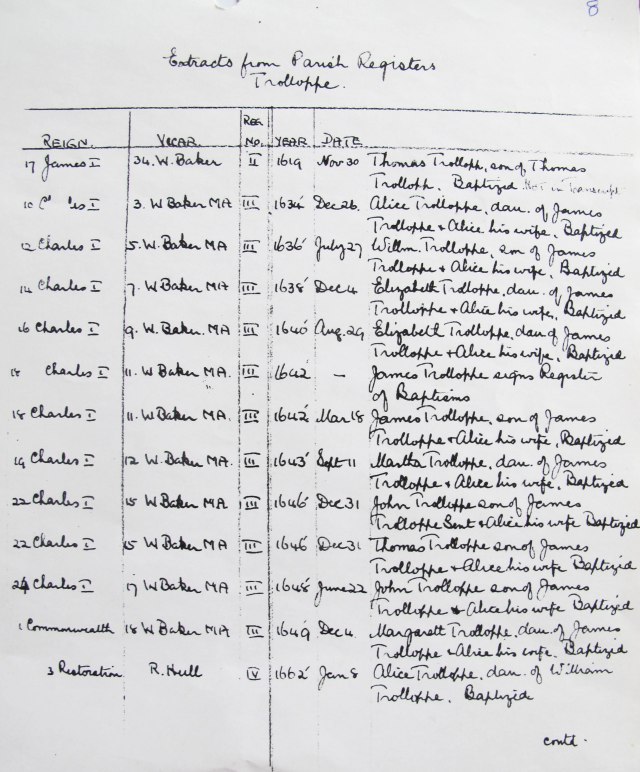 8
Extracts from Parish Registers
Trolloppe.
REIGN. VICAR. REG. NO. YEAR DATE
17 James I 34. W. Baker II 1619 Nov 30 Thomas Trolloph, son of Thomas
Trolloph. Baptized Not in Transcript
10 C' 'les I 3. W Baker MA III 1634 Dec 26. Alice Trolloppe, dau. of James
Trolloppe + Alice his wife. Baptized
12 Charles I 5. W. Baker MA III 1636 July 27 Willm. Trolloppe, son of James
Trolloppe + Alice his wife. Baptized
14 Charles I 7. W. Baker MA III 1638 Dec 4 Elizabeth Trolloppe, dau. of James
Trolloppe + Alice his wife. Baptized
16 Charles I 9. W. Baker. MA III 1640 Aug. 29 Elizabeth Trolloppe, dau of James
Trolloppe + Alice his wife. Baptized
18 Charles I 11. W Baker MA. III 1642 – James Trolloppe signs Register
of Baptisms
18 Charles I 11. W Baker MA. III 1642 Mar 18 James Trolloppe, son of James
Trolloppe + Alice his wife, Baptized
19 Charles I 12 W. Baker MA. III 1643 Sept 11 Martha Trolloppe, dau. of James
Trolloppe + Alice his wife. Baptized
22 Charles I 15 W Baker MA III 1646 Dec 31 John Trolloppe son of James
Trolloppe Gent + Alice his wife Baptized
22 Charles I 15 W Baker MA III 1646 Dec 31 Thomas Trolloppe son of James
Trolloppe + Alice his wife Baptized
24 Charles I 17 W Baker MA III 1648 June 22 John Trolloppe son of James
Trolloppe + Alice his wife Baptized
1 Commonwealth 18 W Baker MA III 1649 Dec 4 Margarett Trolloppe, dau. of James
Trolloppe + Alice his wife. Baptized
3 Restoration R. Hull IV 1662 Jan 8 Alice Trolloppe, dau. of William
Trolloppe. Baptized
contd.